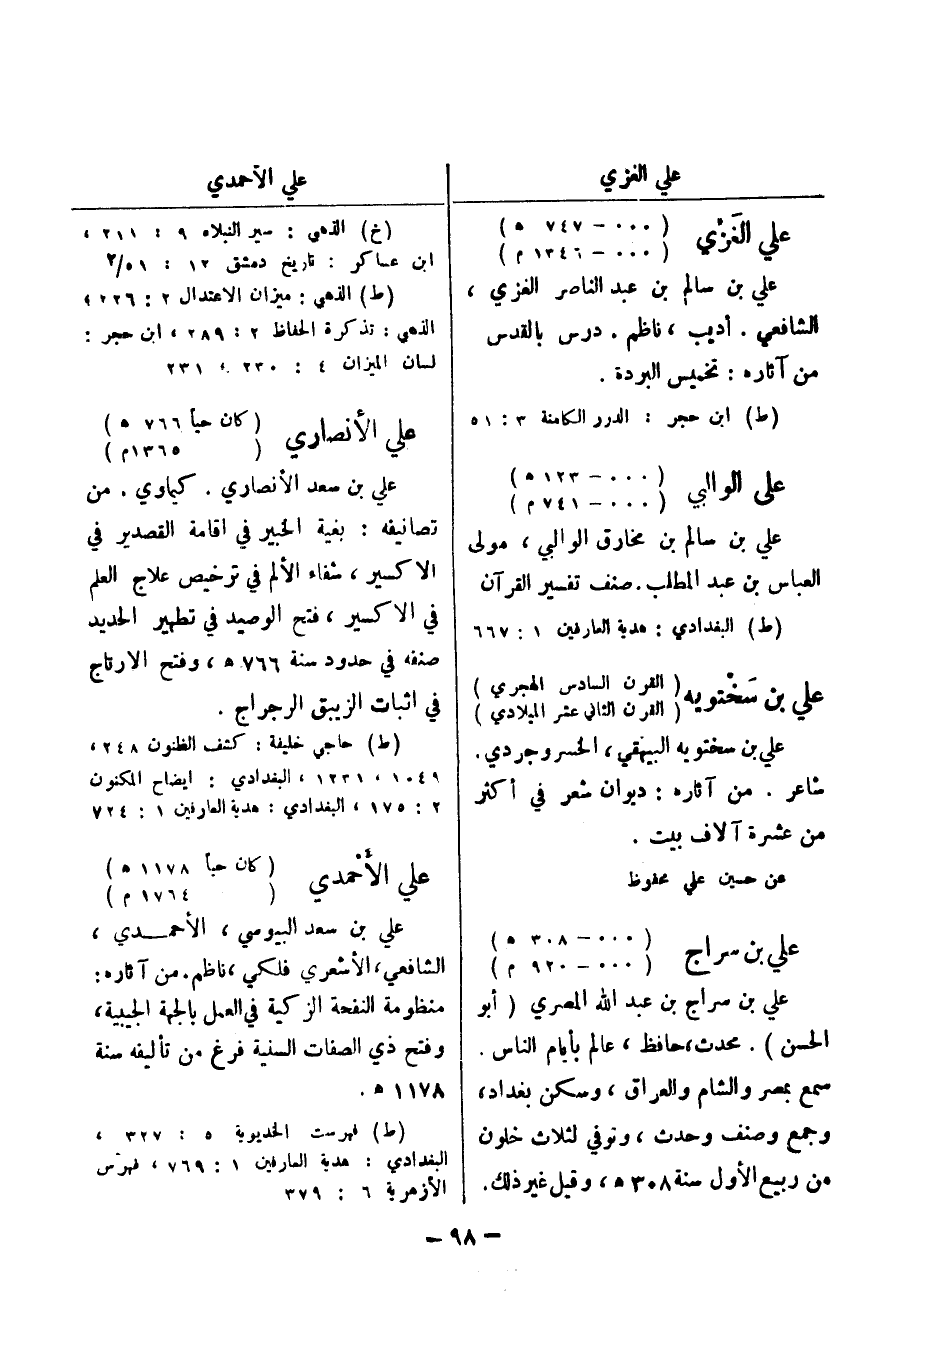 علي الغزي
علي الغَزّي
( ٠٠٠ – ٧٤٧ ه )
( ٠٠٠ – ١٣٤٦ م )
علي بن سالم بن عبد الناصر الغزي ،
الشافعي . أديب ، ناظم . درس بالقدس
من آثاره : تخميس البردة .
(ط) ابن حجر : الدرر الكامنة ٣ : ٥١
علي الوالبي
( ٠٠٠ – ١٢٣ ه )
( ٠٠٠ – ٧٤١ م )
علي بن سالم بن مخارق الوالبي ، مولى
العباس بن عبد المطلب . صنف تفسير القرآن
(ط) البغدادي : هدية العارفين ١ : ٦٦٧
علي بن سَخْتويه
( القرن السادس الهجري )
( القرن الثاني عشر الميلادي )
علي بن سختويه البيهقي ، الخسروجردي .
شاعر . من آثاره : ديوان شعر في أكثر
من عشرة آلاف بيت .
عن حسين علي محفوظ
علي بن سراج
( ٠٠٠ – ٣٠٨ ه )
( ٠٠٠ – ٩٢٠ م )
علي بن سراج بن عبد الله المصري ( أبو
الحسن ) . محدث، حافظ ، عالم بأيام الناس .
سمع بمصر والشام والعراق ، وسكن بغداد،
وجمع وصنف وحدث ، وتوفي لثلاث خلون
من ربيع الأول سنة ٣٠٨ ه ، وقيل غير ذلك .
علي الأحمدي
(خ) الذهبي : سير النبلاء ٩ : ٢١١ ،
ابن عساكر : تاريخ دمشق ١٢ : ٢/٥١
(ط) الذهبي : ميزان الاعتدال ٢ : ٢٢٦ ،
الذهبي : تذكرة الحفاظ ٢ : ٢٨٩ ، ابن حجر :
لسان الميزان ٤ : ٢٣٠ ، ٢٣١
علي الأنصاري
( كان حياً ٧٦٦ ه )
( ١٣٦٥ م )
علي بن سعد الأنصاري . كيماوي . من
تصانيفه : بغية الخبير في اقامة القصدير في
الاكسير ، شفاء الألم في ترخيص علاج العلم
في الاكسير ، فتح الوصيد في تطهير الحديد
صنفه في حدود سنة ٧٦٦ ه ، وفتح الارتاج
في اثبات الزيبق الرجراج .
(ط) حاجي خليفة : كشف الظنون ٢٤٨ ،
١٠٤٩ ، ١٢٣١ ، البغدادي : ايضاح المكنون
٢ : ١٧٥ ، البغدادي : هدية العارفين ١ : ٧٢٤
علي الأَحْمدي
( كان حياً ١١٧٨ ه )
( ١٧٦٤ م )
علي بن سعد البيوسي ، الأحمــدي ،
الشافعي، الأشعري فلكي ، ناظم . من آثاره :
منظومة النفحة الزكية في العمل بالجهة الجيبية،
وفتح ذي الصفات السنية فرغ من تأليفه سنة
١١٧٨ ه .
(ط) فهرست الخديوية ٥ : ٣٢٧ ،
البغدادي : هدية العارفين ١ : ٧٦٩ ، فهرس
الأزهرية ٦ : ٣٧٩
– ٩٨ –